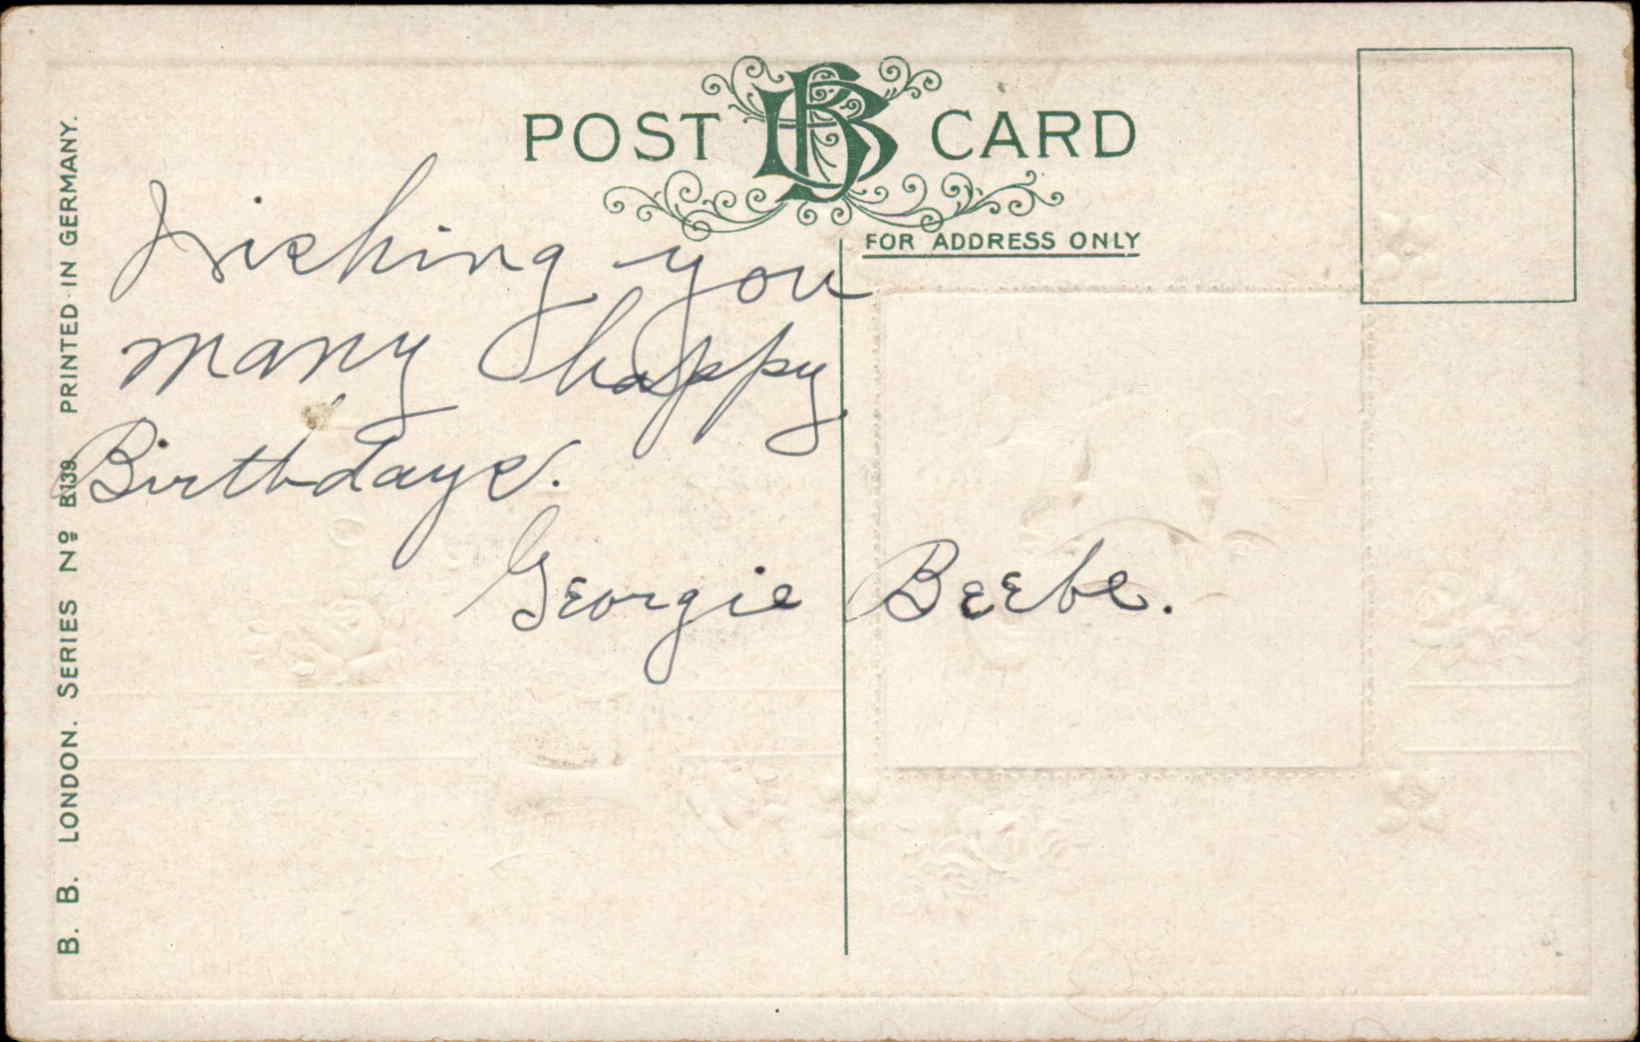 POST BB CARD
FOR ADDRESS ONLY
Wishing you
many happy
Birthdays.
Georgie Beebe.
B. B. LONDON. SERIES Nº B139 PRINTED IN GERMANY.